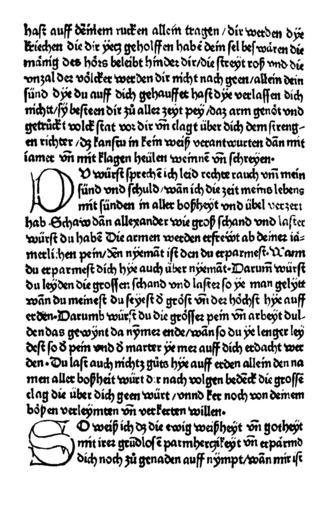 hast auff deinem rucken allein tragen / dir werden dye
kriechen die dir yecz geholffen habē dein sel bewaren die
mänig des hörs beleibt hinder dir / die streyt roß vnd die
vnzal der völcker werden dir nicht nach geen / allein dein
sünd dye du auff dich gehauffet hast dye verlassen dich
nichtt / sy besteen dir zů aller zeyt pey / daz arm genöt vnd
getrückt volck stat vor dir vñ clagt über dich dem streng-
en richter / dz kanstu in kein weiß verantwurten dān mit
iamer vñ mit klagen heülen weinnē vñ schreyen ·
DU würst sprechē ich leid rechte rauch vm̄ mein
sünd vnd schuld / wān ich die zeit meins lebens
mit sünden in aller boßheyt vnd übel verzert
hab · Schaw dān allexander wie groß schand vnd laster
würst du habē Die armen werden erfrewt ab deiner ia-
merlichen pein / den nyemāt ist den du erparmest · Wann
du erparmest dich hye auch über nyemāt · Darum̄ würst
du leyden die grossen schand vnd laster so ye man gelytt
wān du meinest du seyest d̄ gröst vñ der höchst hye auff
erden · Darumb würst du die grösser pein vñ arbeyt dul-
den das gewynt da nymer ende / wān so du ye lenger ley
dest so d̄ pein vnd d̄ marter ye mer auff dich erdacht wer
den · Du last auch nichtz gůts hye auff erden allein den na
men aller boßheit würt dir nach volgen bedeck die grosse
clag die über dich geen würt / vnnd ker noch von deinem
bösen verleymten vñ verkerten willen ·
SO weiß ich dz die ewig weißheyt vñ gotheyt
mit irer grūdlosē parmherczikeyt vñ erpārmd
dich noch zů genaden auff nympt / wān mir ist